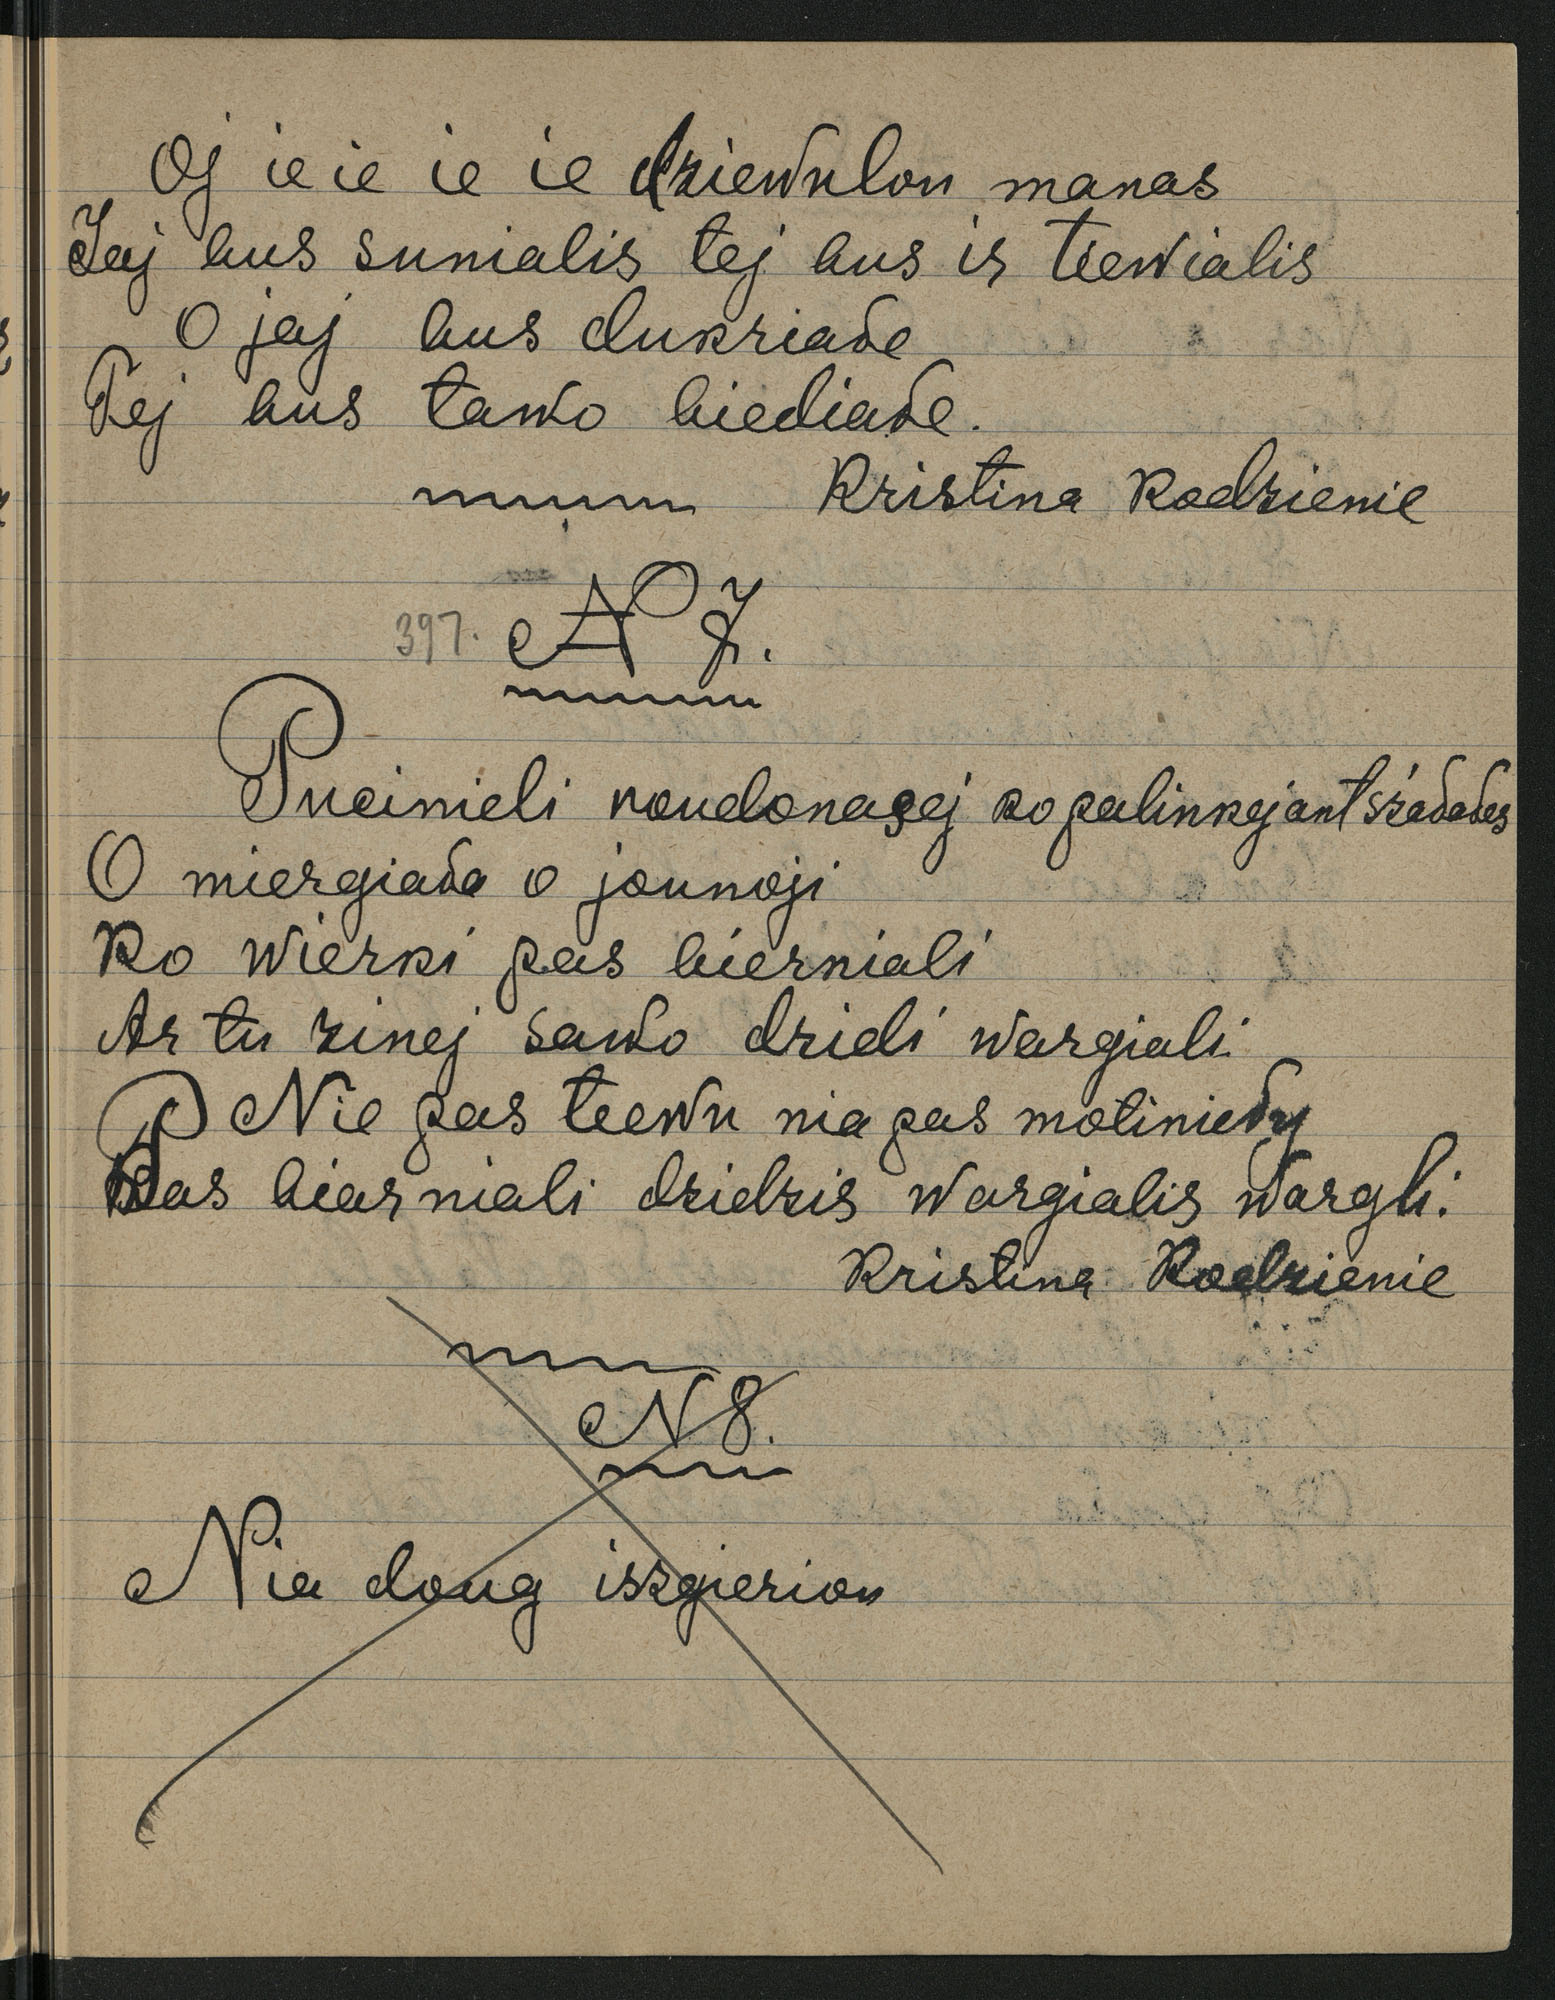 Oj ie ie ie ie dziewulou manas
Jej bus sunialis tej bus ir tiewialis
O jej bus dukriale
Tej bus tawo biediale.
Kristina Kodzienie
397. N 7.
Pucinieli roudonasej ko palinkej ant szalales
O miergiale o jounoji
Ko wierki pas bierniali
Ar tu zinej sawo dzidi wargiali
Nie pas tiewu nia pas motiniely
Pas biarniali dzidzis wargialis wargti.
Kristina Kodzienie
N 8.
Nia doug iszgierion